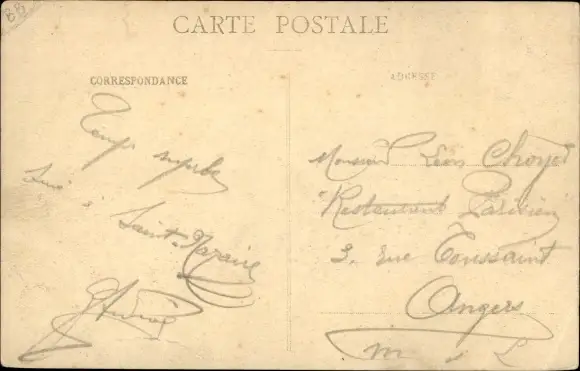 BB
CARTE POSTALE
CORRESPONDANCE
ADRESSE
Temps superbe
à Saint-Nazaire
Monsieur Léon
Restaurant Parisien
3. rue Toussaint
Angers
M. & L.